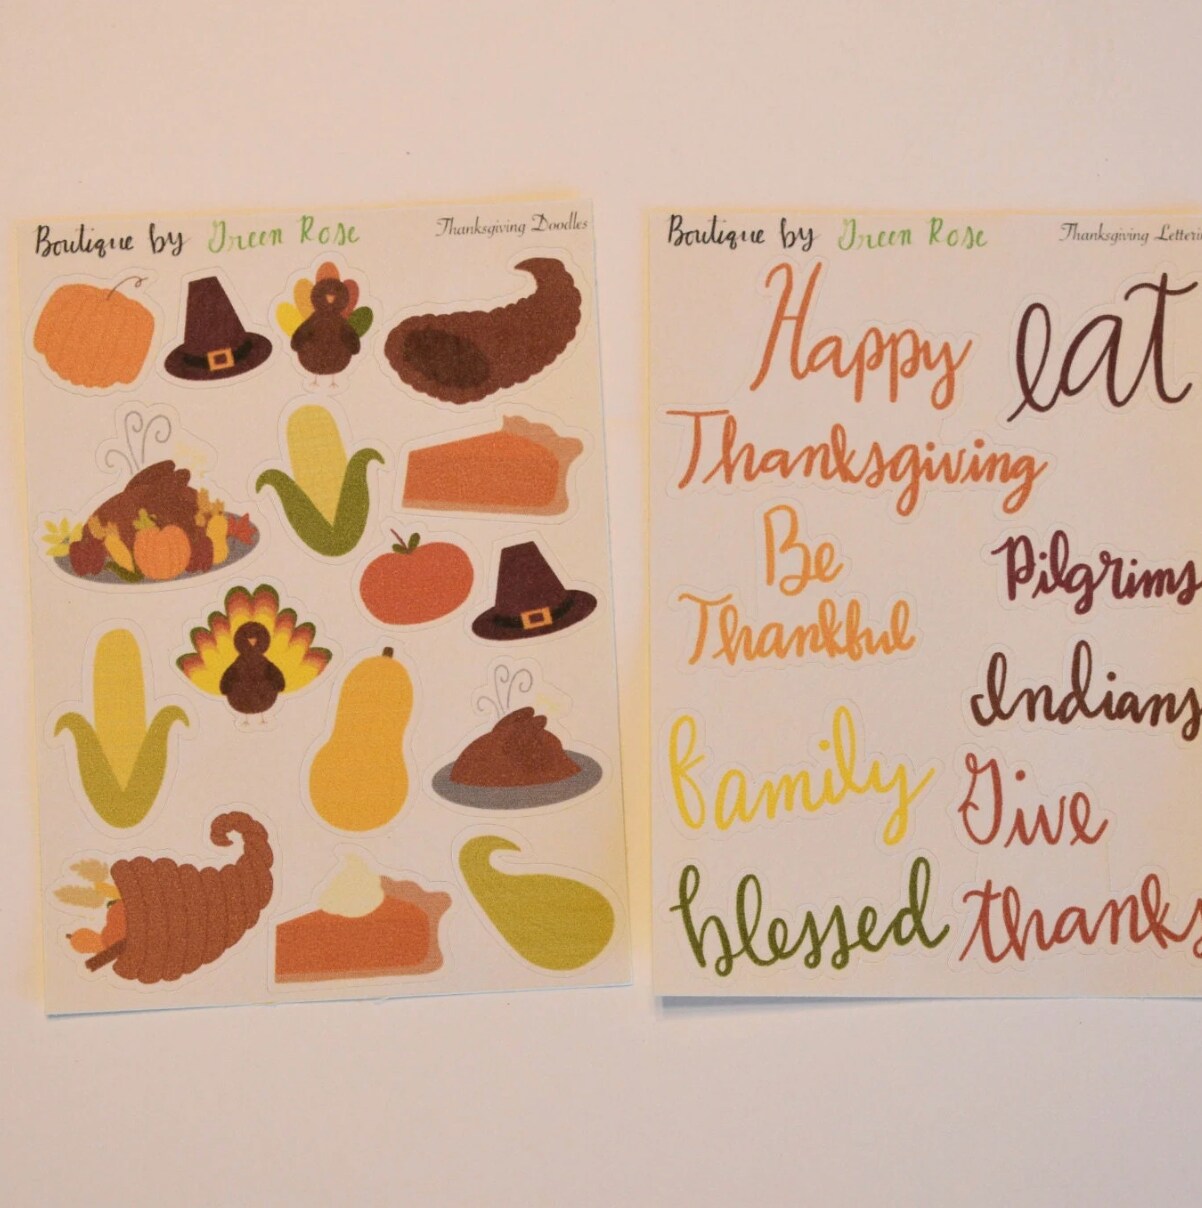 Boutique by Green Rose
Thanksgiving Doodles
Boutique by Green Rose
Thanksgiving
Happy
Thanksgiving
eat
Be
Thankful
Pilgrims
Indians
family
Give
thanks
blessed